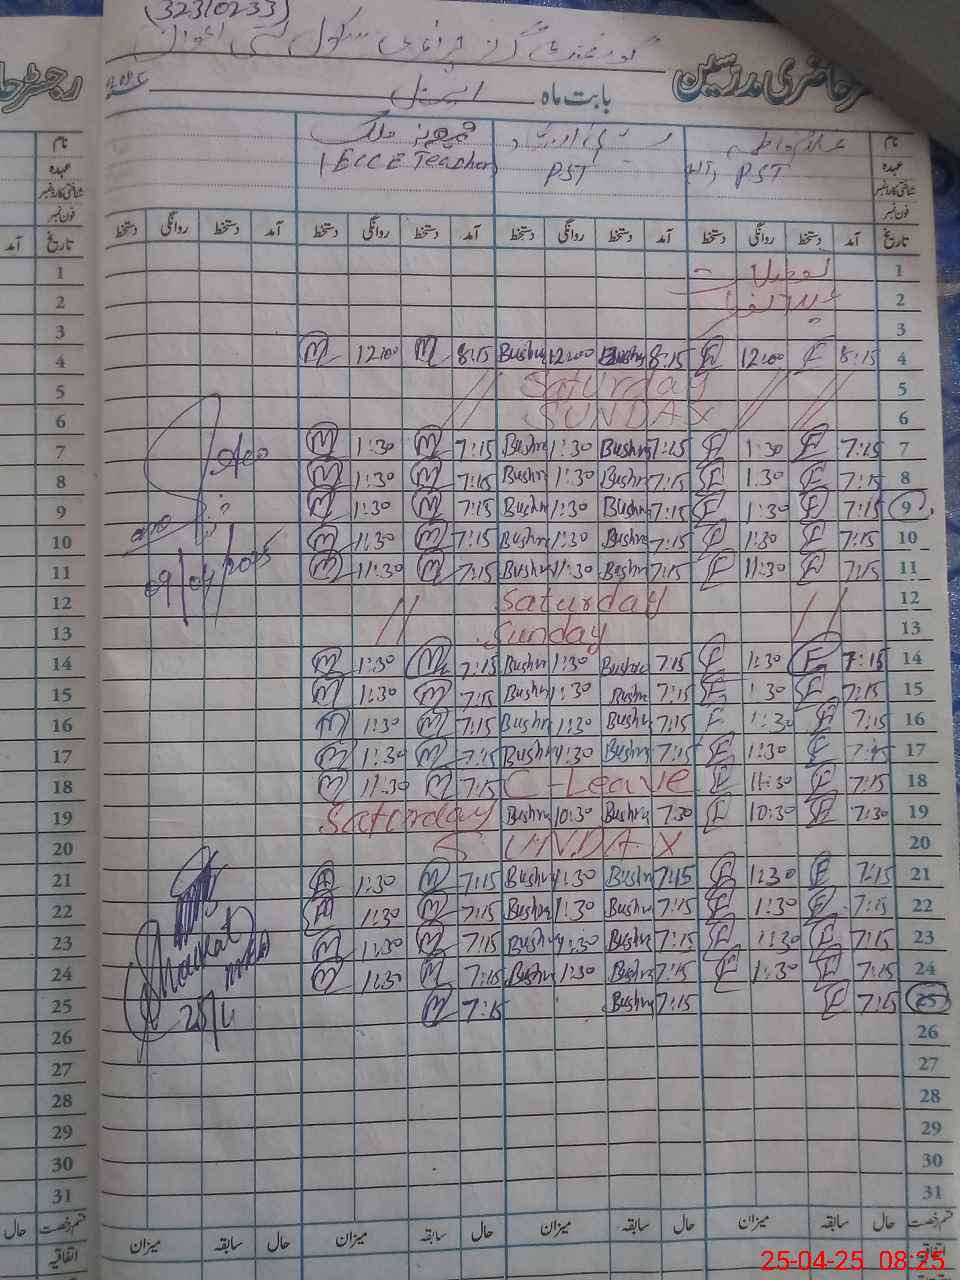 (32310233)
گورنمنٹ گرلز پرائمری سکول
رجسٹر حاضری مدرسین
بابت ماہ اپریل
نام
عہدہ HT, PST PST ECCE Teacher
شناختی کارڈ نمبر
فون نمبر
تاریخ آمد دستخط روانگی دستخط آمد دستخط روانگی دستخط آمد دستخط روانگی دستخط آمد دستخط روانگی دستخط
1 تعطیلات
2 عیدالفطر
3
4 8:15 E 12:00 E 8:15 Bushra 12:00 Bushra 8:15 M 12:00 M
5 Saturday
6 SUNDAY
7 7:15 E 1:30 E 7:15 Bushra 1:30 Bushra 7:15 M 1:30 M
8 7:15 E 1:30 E 7:15 Bushra 1:30 Bushra 7:15 M 1:30 M
9 7:15 E 1:30 E 7:15 Bushra 1:30 Bushra 7:15 M 1:30 M
10 7:15 E 1:30 E 7:15 Bushra 1:30 Bushra 7:15 M 1:30 M
11 7:15 E 11:30 E 7:15 Bushra 11:30 Bushra 7:15 M 11:30 M
09/04/2025
12 Saturday
13 Sunday
14 7:15 E 1:30 E 7:15 Bushra 1:30 Bushra 7:15 M 1:30 M
15 7:15 E 1:30 E 7:15 Bushra 1:30 Bushra 7:15 M 1:30 M
16 7:15 E 1:30 E 7:15 Bushra 1:30 Bushra 7:15 M 1:30 M
17 7:15 E 1:30 E 7:15 Bushra 1:30 Bushra 7:15 M 1:30 M
18 7:15 E 11:30 E C-Leave 7:15 M 11:30 M
19 7:30 E 10:30 E 7:30 Bushra 10:30 Bushra Saturday
20 SUNDAY
21 7:15 E 1:30 E 7:15 Bushra 1:30 Bushra 7:15 M 1:30
22 7:15 E 1:30 E 7:15 Bushra 1:30 Bushra 7:15 M 1:30
23 7:15 E 1:30 E 7:15 Bushra 1:30 Bushra 7:15 M 1:30 M
24 7:15 E 1:30 E 7:15 Bushra 1:30 Bushra 7:15 M 1:30 M
25 7:15 E 7:15 Bushra 7:15 M
Shaukat
25/4
26
27
28
29
30
31
قسم رخصت حال سابقہ میزان حال سابقہ میزان حال سابقہ میزان حال سابقہ میزان
اتفاقیہ
25-04-25 08:25